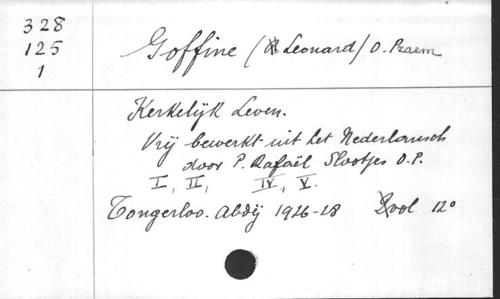 328
125
1
Goffine (Leonard) O. Praem
Kerkelijk Leven.
Vrij bewerkt uit het Nederlandsch
door P. Rafaël Slootjes O.P.
I, II, IV, V.
Tongerloo. Abdij 1926-28 vol 12°